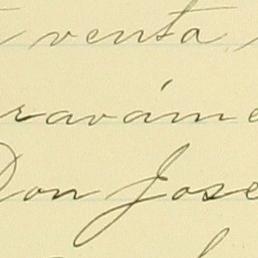 venta
raváme
Don Jose